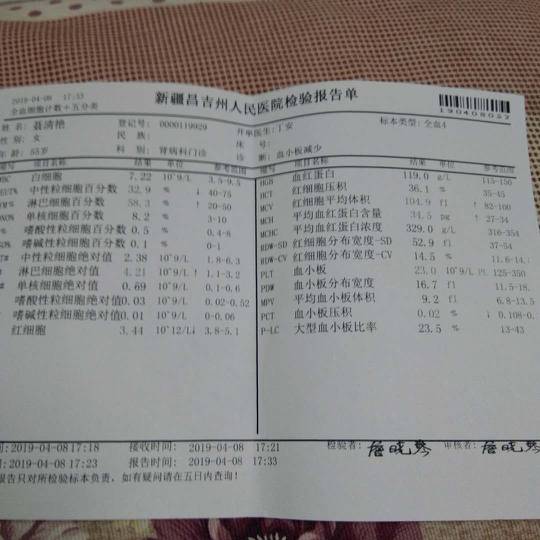 2019-04-08 17:33
全血细胞计数+五分类
新疆昌吉州人民医院检验报告单
190408052
姓名: 聂清艳 登记号: 0000119929 开单医生: 丁安 标本类型: 全血4
性别: 女 民族: 床号:
年龄: 55岁 科别: 肾病科门诊 诊断: 血小板减少
项目名称 结果 单位 参考范围
白细胞 7.22 10^9/L 3.5-9.5
中性粒细胞百分数 32.9 % ↓ 40-75
淋巴细胞百分数 58.3 % ↑ 20-50
单核细胞百分数 8.2 % 3-10
嗜酸性粒细胞百分数 0.5 % 0.4-8
嗜碱性粒细胞百分数 0.1 % 0-1
中性粒细胞绝对值 2.38 10^9/L 1.8-6.3
淋巴细胞绝对值 4.21 10^9/L ↑ 1.1-3.2
单核细胞绝对值 0.69 10^9/L 0.1-0.6
嗜酸性粒细胞绝对值 0.03 10^9/L 0.02-0.52
嗜碱性粒细胞绝对值 0.01 10^9/L 0-0.06
红细胞 3.44 10^12/L ↓ 3.8-5.1
项目名称 结果 单位 参考范围
HGB 血红蛋白 119.0 g/L 115-150
HCT 红细胞压积 36.1 % 35-45
MCV 红细胞平均体积 104.9 fl ↑ 82-100
MCH 平均血红蛋白含量 34.5 pg ↑ 27-34
MCHC 平均血红蛋白浓度 329.0 g/L 316-354
RDW-SD 红细胞分布宽度-SD 52.9 fl 37-54
RDW-CV 红细胞分布宽度-CV 14.5 % 11.6-14.
PLT 血小板 23.0 10^9/L PL 125-350
PDW 血小板分布宽度 16.7 fl 11.5-18.
MPV 平均血小板体积 9.2 fl 6.8-13.5
PCT 血小板压积 0.02 % ↓ 0.108-0.
P-LC 大型血小板比率 23.5 % 13-43
间: 2019-04-08 17:18 接收时间: 2019-04-08 17:21 检验者: 詹晓琴 审核者: 詹晓琴
间: 2019-04-08 17:23 报告时间: 2019-04-08 17:33
报告只对所检验标本负责,如有疑问请在五日内查询!